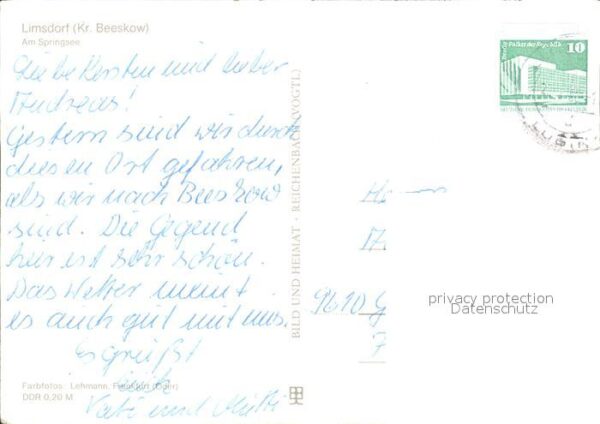 Limsdorf (Kr. Beeskow)
Am Springsee
Liebe Kerstin und lieber
Andreas!
Gestern sind wir durch
diesen Ort gefahren,
als wir nach Beeskow
sind. Die Gegend
hier ist sehr schön.
Das Wetter meint
es auch gut mit uns.
Es grüßt
Euch
Vati und Mutti
Farbfotos: Lehmann, Frankfurt (Oder)
DDR 0,20 M
BILD UND HEIMAT · REICHENBACH (VOGTL)
Berlin, Palast der Republik
10
9610 G
privacy protection
Datenschutz